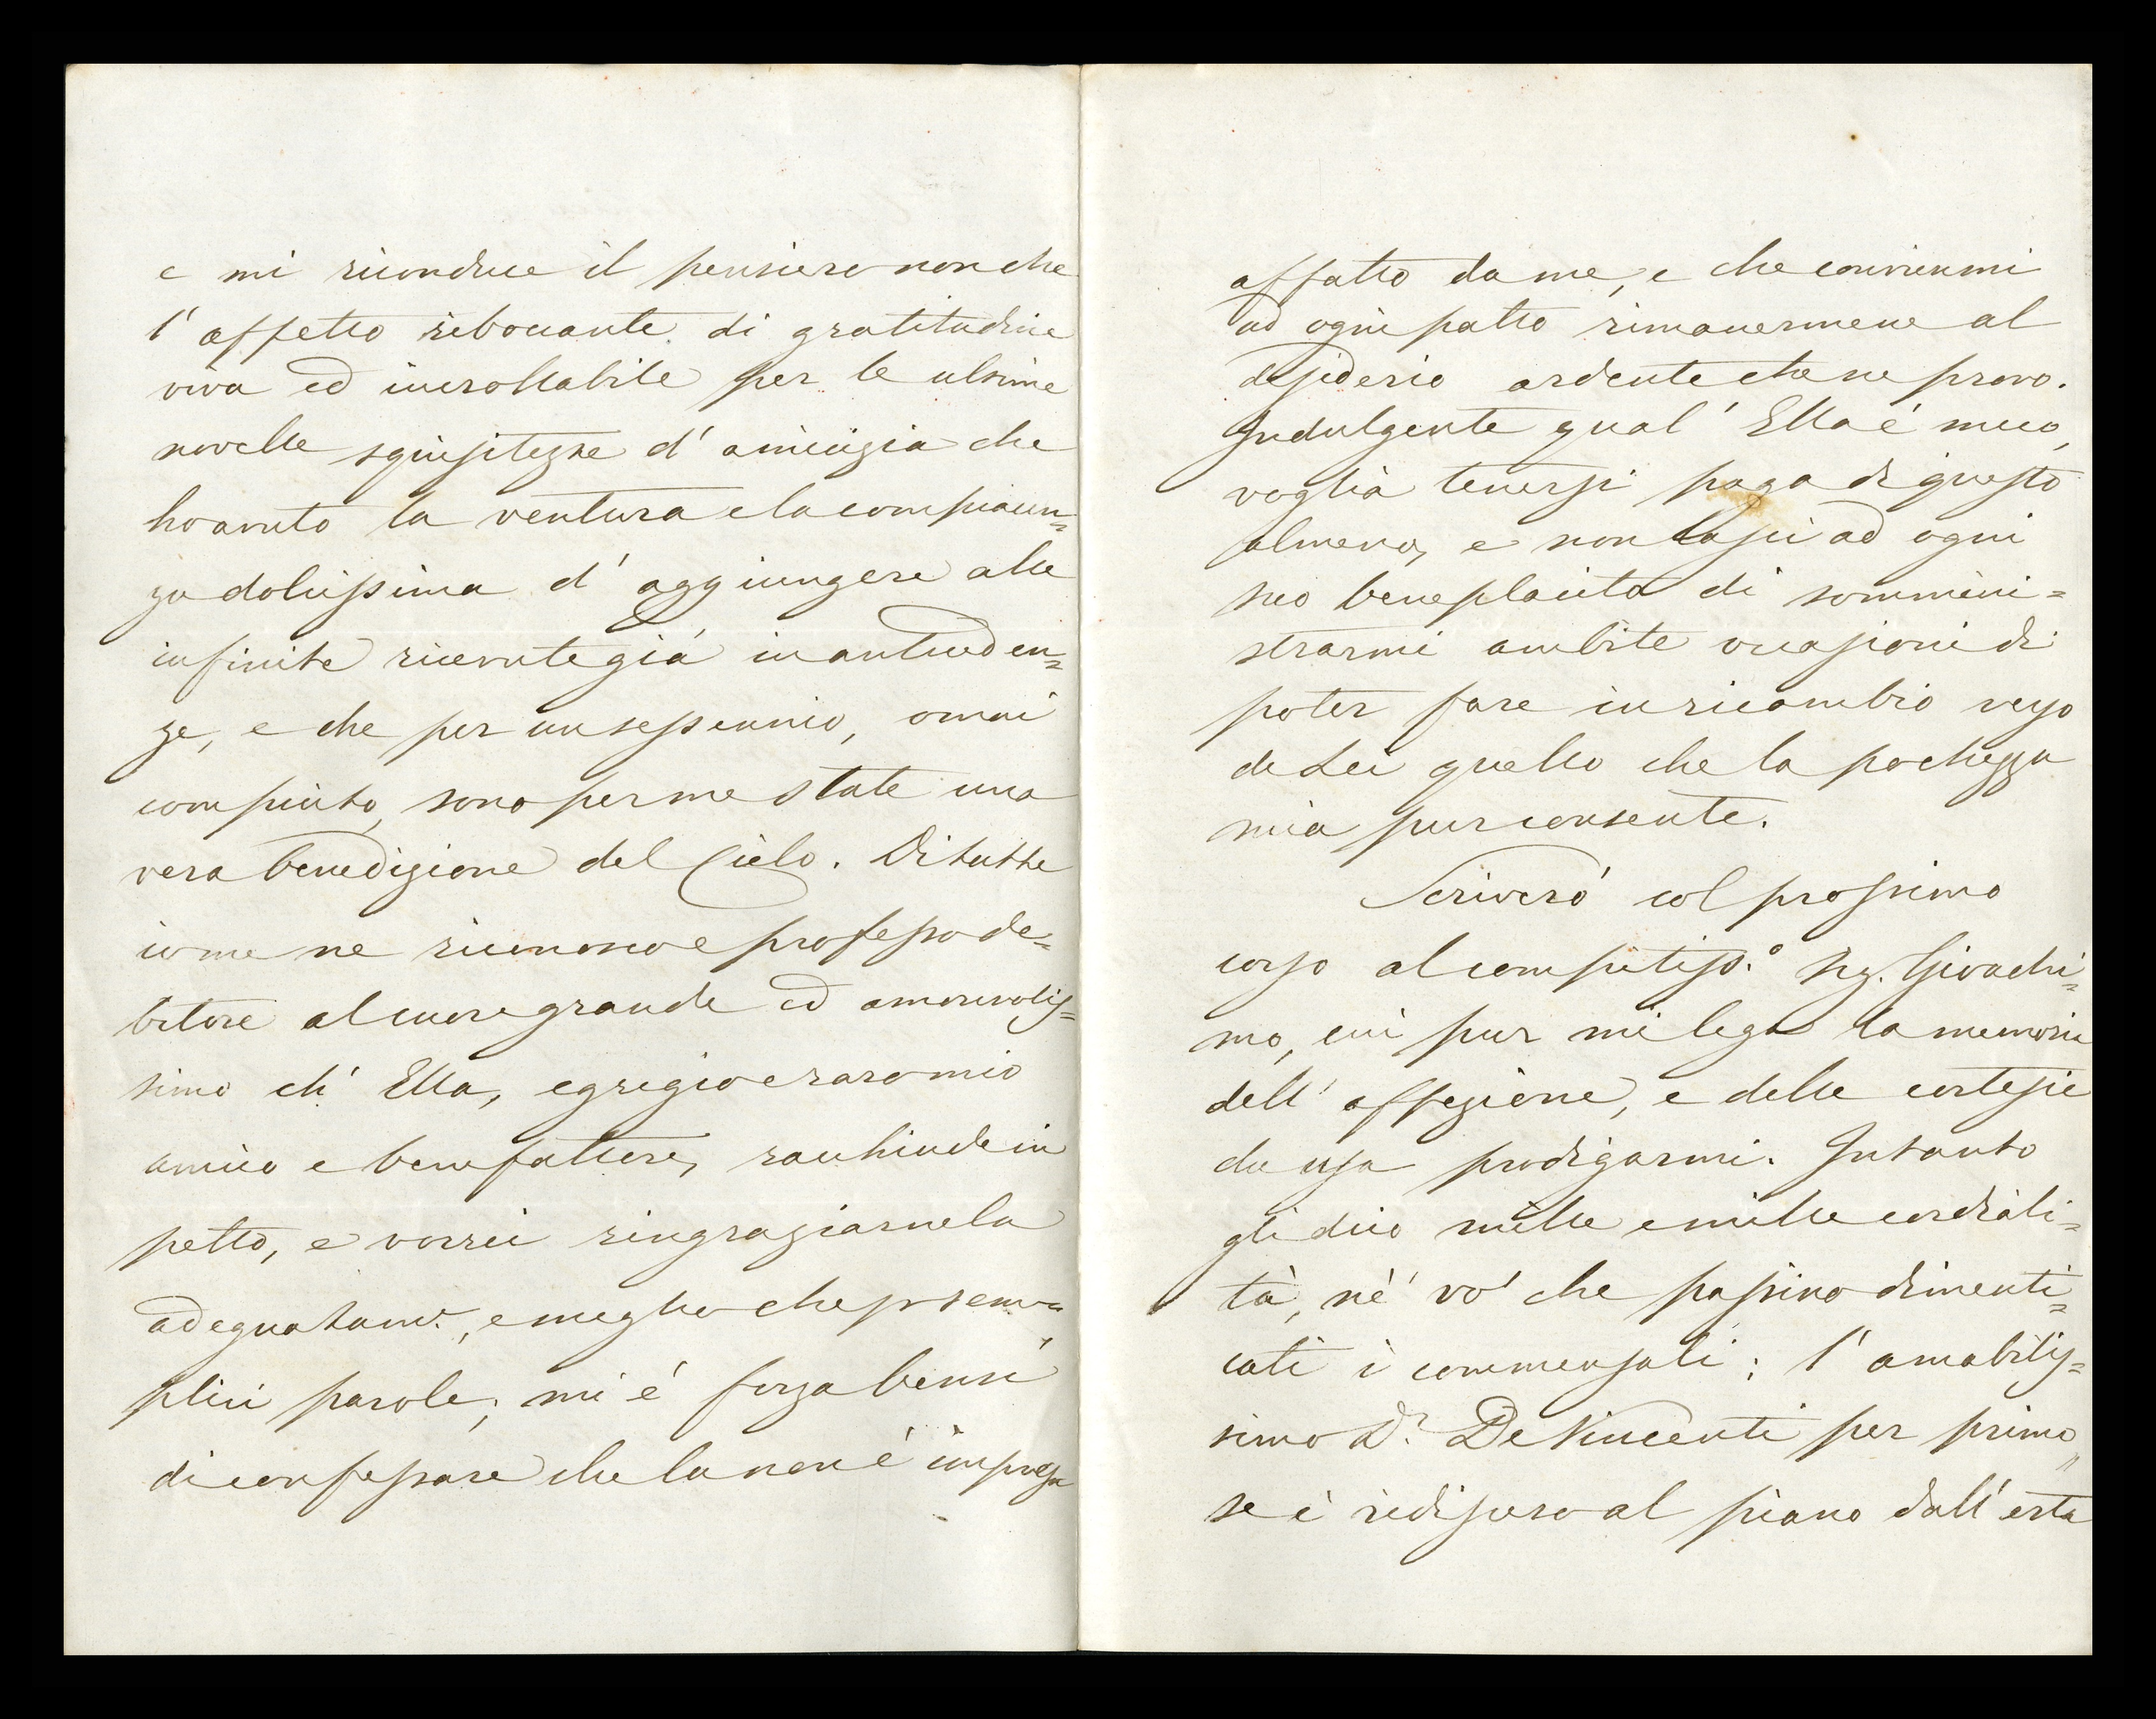 e mi riconduce il pensiero non che
l' affetto riboccante di gratitudine
viva ed incrollabile per le ultime
novelle squisitezze d' amicizia che
ho avuto la ventura e la compiacen=
za dolcissima d' aggiungere alle
infinite ricevute già in anteceden=
ze, e che per un sessennio, omai
compiuto, sono per me state una
vera benedizione del Cielo. Di tutte
come ne riconosco e professo de=
bitore al cuore grande ed amorevolis=
simo ch' Ella, egregio e raro mio
amico e benefattore, racchiude in
petto, e vorrei ringraziarnela
adeguatam.e, e meglio che p sem=
plici parole; mi è forza bensì
di confessare che la non è impresa
affatto da me, e che conviemmi
ad ogni patto rimanermene al
desiderio ardente che ne provo.
Indulgente qual' Ella é meco,
voglia tenersi paga di questo
almeno, e non lasci ad ogni
suo beneplacito di sommini=
strarmi ambite occasioni di
poter fare in ricambio verso
di Lei quello che la pochezza
mia pur consente.
Scriverò col prossimo
corso al compitiss.o Sig. Giovachi=
mo, cui pur mi lega la memoria
dell' affezione, e delle cortesie
da usa prodigarmi. Intanto
gli dico mille e mille cordiali=
tà, nè vo' che passino dimenti=
cati i commensali; l' amabilis=
simo D.r De Vincenti per primo,
se è ridisceso al piano dall' erta